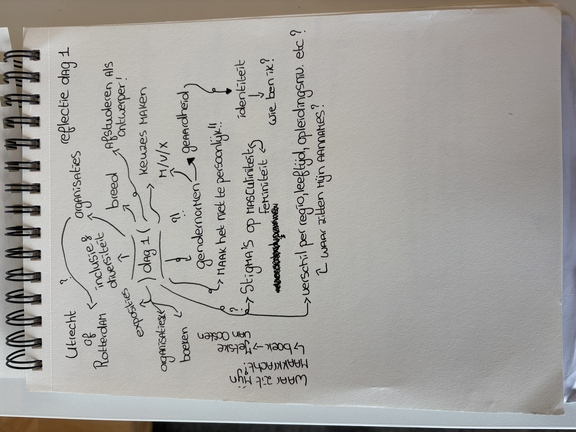 reflectie dag 1
Utrecht
of
Rotterdam
?
organisaties
inclusie &
diversiteit
breed
Afstuderen als
ontwerper!
exposities
dag 1
keuzes maken
M/V/X
organisatie
boeren
?!
gendernormen
geaardheid
Maak het niet te persoonlijk!!
identiteit
wie ben ik?
?
Stigma's op masculiniteit
feminiteit
verschil per regio, leeftijd, opleidingsniv. etc?
waar zitten mijn aannames?
waar zit mijn
maakkracht?!
boek → Jetske
van Oosten